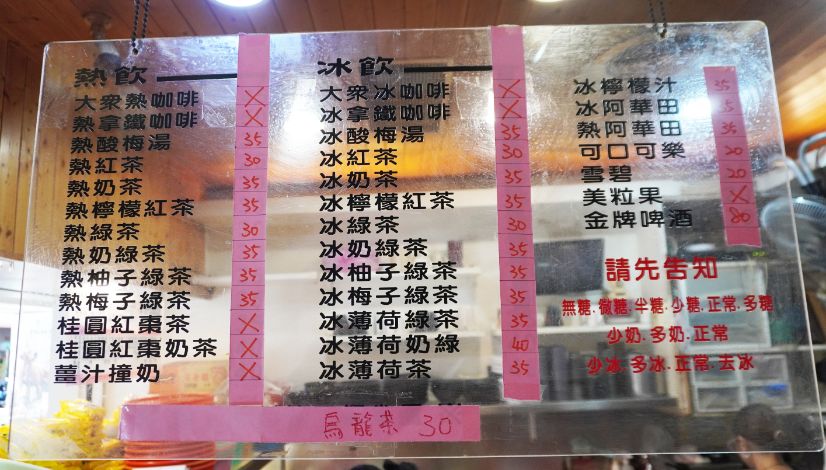 熱飲
大眾熱咖啡 X
熱拿鐵咖啡 X
熱酸梅湯 35
熱紅茶 30
熱奶茶 35
熱檸檬紅茶 35
熱綠茶 30
熱奶綠茶 35
熱柚子綠茶 35
熱梅子綠茶 35
桂圓紅棗茶 X
桂圓紅棗奶茶 X
薑汁撞奶 X
冰飲
大眾冰咖啡 X
冰拿鐵咖啡 X
冰酸梅湯 35
冰紅茶 30
冰奶茶 35
冰檸檬紅茶 35
冰綠茶 30
冰奶綠茶 35
冰柚子綠茶 35
冰梅子綠茶 35
冰薄荷綠茶 35
冰薄荷奶綠 40
冰薄荷茶 35
冰檸檬汁 35
冰阿華田
熱阿華田 35
可口可樂 20
雪碧 20
美粒果 X
金牌啤酒 80
請先告知
無糖.微糖.半糖.少糖.正常.多糖
少奶.多奶.正常
少冰.多冰.正常.去冰
烏龍茶 30